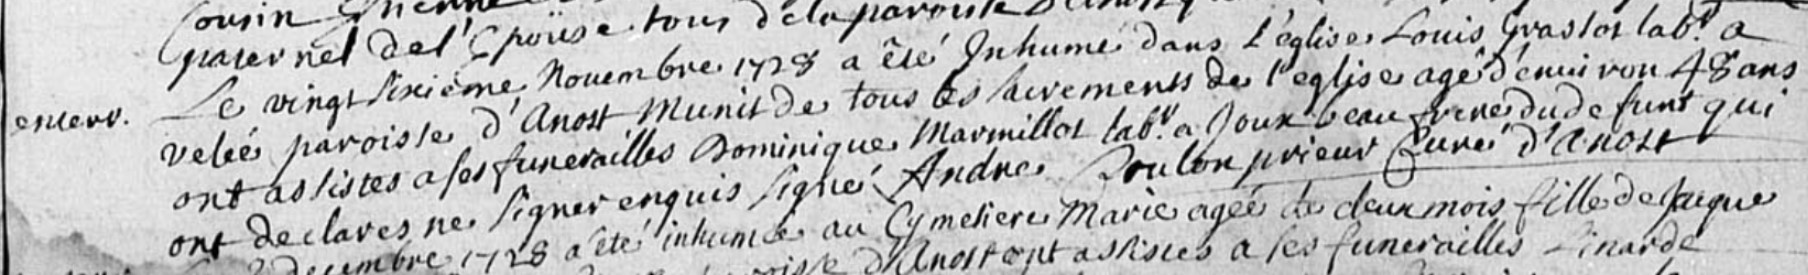 cousin
paternel de l'Epouse tous de la paroisse d'Anost
Le vingt sixième Novembre 1728 a êté Inhumé dans L'église Louis Graslot lab.r a
enterr. velée paroisse d'Anost Munit de tous les sacrements de l'eglise agé d'environ 48 ans
ont assistes a ses funerailles Dominique Marmillot lab.r a Joux beau frere du defunt qui
ont declares ne signer enquis signé Andre Doulon prieur Curé d'Anost
decembre 1728 a été inhumée au Cymetiere Marie agée de deux mois fille de Jacque
d'Anost ont assistés a ses funerailles Linarde